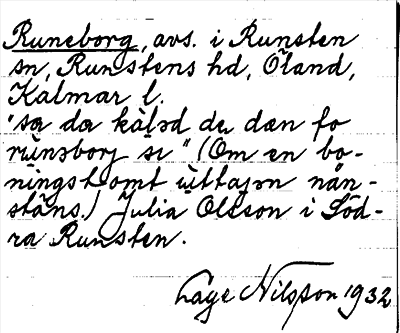 Runeborg, avs. i Runsten
sn, Runstens hd, Öland,
Kalmar l.
"sa da kaləd du dæn fo
runəborj si" (Om en bo-
ningstomt uttajən nån-
stäns.) Julia Olsson i Söd-
ra Runsten.
Låge Nilsson 1932